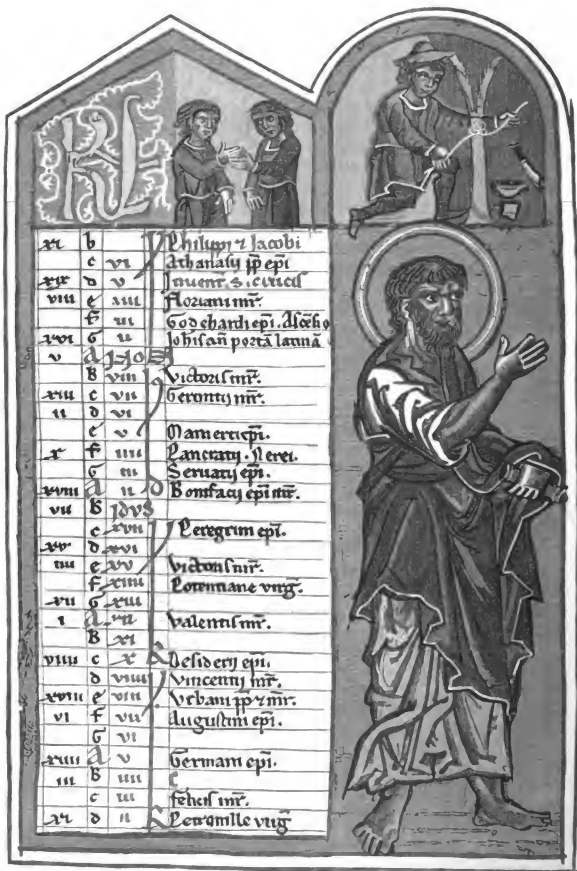 KL
xi b Philippi ⁊ Jacobi
c vi Athanasij pp̄ ep̄i
xix d v Jnuent. s. crucis
viii e iiii Floriani mr̄.
f iii Godehardi ep̄i. Ascēsio
xvi G ii Joh̄is an̄ portā latinā
v A
B viii Victoris mr̄.
xiii c vii Gerontij mr̄.
ii d vi
e v Mamerti ep̄i.
x f iiii Pancratij. Nerei.
G iii Seruatij ep̄i.
xviii A ii Bonifacij ep̄i mr̄.
vii B JdvS
c xvii Peregrini ep̄i.
xv d xvi
iiii e xv Victoris mr̄.
f xiiii Potentiane virḡ.
xii G xiii
i A xii Valentis mr̄.
B xi
viiii c x Desiderij ep̄i.
d viiii Vincentij mr̄.
xvii e viii Vrbani pp̄ ⁊ mr̄.
vi f vii Augustini ep̄i.
G vi
xiiii A v Germani ep̄i.
iii B iiii
c iii felicis mr̄.
xi d ii Petronille virḡ